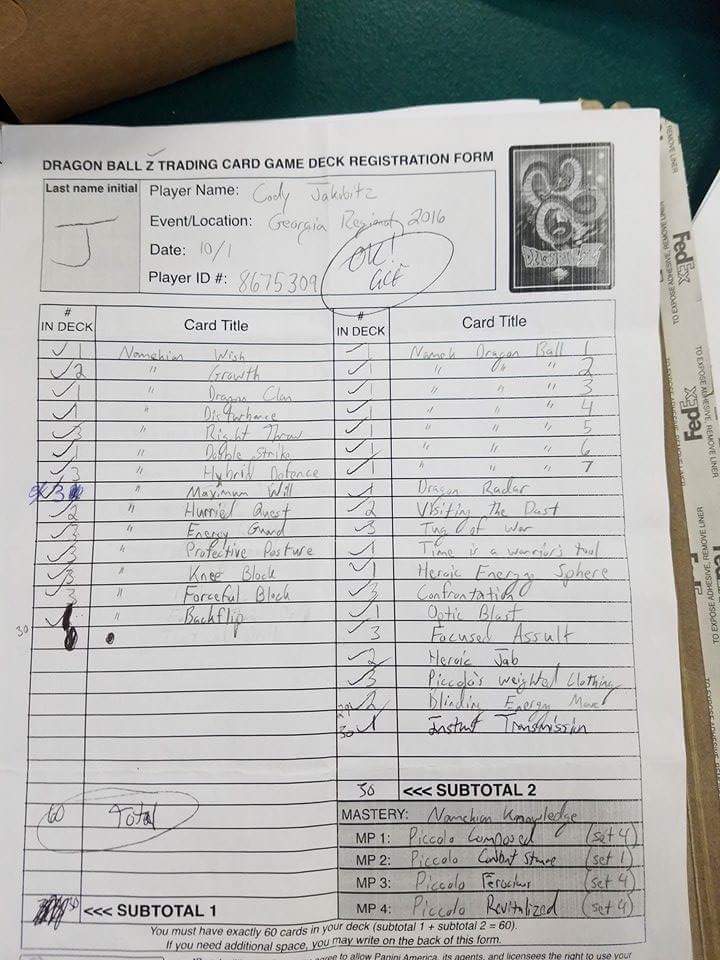 DRAGON BALL Z TRADING CARD GAME DECK REGISTRATION FORM
Last name initial
J
Player Name: Cody Jakubitz
Event/Location: Georgia Regionals 2016
Date: 10/1
Player ID #: 8675309
OK!
# IN DECK Card Title
✓1 Namekian Wish
✓2 " Growth
✓1 " Dragon Clan
✓1 " Disturbance
✓3 " Right Throw
✓1 " Double Strike
✓3 " Hybrid Defence
3 " Maximum Will
✓2 " Hurried Quest
✓3 " Energy Guard
✓3 " Protective Posture
✓3 " Knee Block
3 " Forceful Block
✓1 " Backflip
30
60 Total
30 <<< SUBTOTAL 1
# IN DECK Card Title
✓1 Namek Dragon Ball 1
✓1 " " " 2
✓1 " " " 3
✓1 " " " 4
✓1 " " " 5
✓1 " " " 6
✓1 " " " 7
✓1 Dragon Radar
✓2 Visiting the Past
✓3 Tug of War
✓1 Time is a warrior's tool
✓1 Heroic Energy Sphere
✓3 Confrontation
✓1 Optic Blast
✓3 Focused Assult
✓2 Heroic Jab
✓3 Piccolo's weighted Clothing
29 ✓2 Blinding Energy Move
30 ✓1 Instant Transmission
30 <<< SUBTOTAL 2
MASTERY: Namekian Knowledge
MP 1: Piccolo Composed (set 4)
MP 2: Piccolo Combat Stance (set 1)
MP 3: Piccolo Ferocius (set 4)
MP 4: Piccolo Revitalized (set 4)
You must have exactly 60 cards in your deck (subtotal 1 + subtotal 2 = 60).
If you need additional space, you may write on the back of this form.
agree to allow Panini America, its agents, and licensees the right to use your
FedEx
TO EXPOSE ADHESIVE, REMOVE LINER
FedEx
TO EXPOSE ADHESIVE, REMOVE LINER